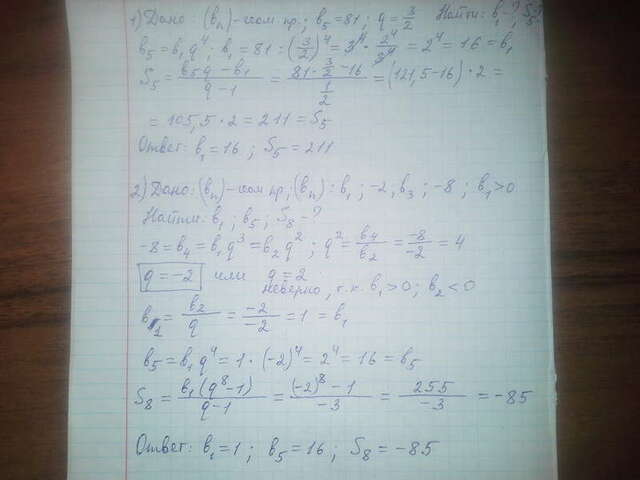 1) Дано: (bₙ) - геом. пр.; b₅ = 81; q = 3/2 Найти: b₁ - ? S₅ - ?
b₅ = b₁q⁴; b₁ = 81 : (3/2)⁴ = 3⁴ · 2⁴/3⁴ = 2⁴ = 16 = b₁
S₅ = (b₅q - b₁)/(q - 1) = (81 · 3/2 - 16)/(1/2) = (121,5 - 16) · 2 =
= 105,5 · 2 = 211 = S₅
Ответ: b₁ = 16; S₅ = 211
2) Дано: (bₙ) - геом. пр.; (bₙ): b₁; -2; b₃; -8; b₁ > 0
Найти: b₁; b₅; S₈ - ?
-8 = b₄ = b₁q³ = b₂q²; q² = b₄/b₂ = -8/-2 = 4
q = -2 или q = 2
неверно, т.к. b₁ > 0; b₂ < 0
b₁ = b₂/q = -2/-2 = 1 = b₁
b₅ = b₁q⁴ = 1 · (-2)⁴ = 2⁴ = 16 = b₅
S₈ = b₁(q⁸ - 1)/(q - 1) = ((-2)⁸ - 1)/-3 = 255/-3 = -85
Ответ: b₁ = 1; b₅ = 16; S₈ = -85